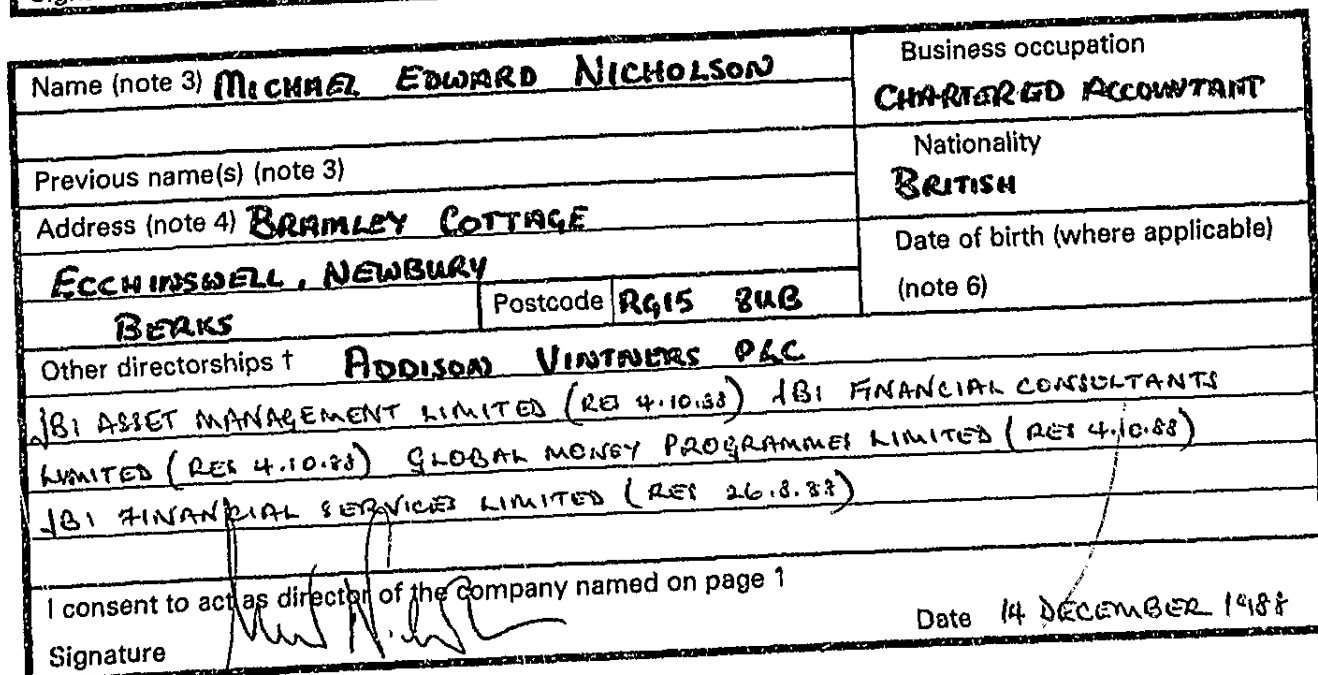 Name (note 3) MICHAEL EDWARD NICHOLSON
Business occupation
CHARTERED ACCOUNTANT
Previous name(s) (note 3)
Nationality
BRITISH
Address (note 4) BRAMLEY COTTAGE
ECCHINSWELL, NEWBURY
BERKS Postcode RG15 8UB
Date of birth (where applicable)
(note 6)
Other directorships † ADDISON VINTNERS PLC
JBI ASSET MANAGEMENT LIMITED (RES 4.10.88) JBI FINANCIAL CONSULTANTS
LIMITED (RES 4.10.88) GLOBAL MONEY PROGRAMMES LIMITED (RES 4.10.88)
JBI FINANCIAL SERVICES LIMITED (RES 26.8.88)
I consent to act as director of the company named on page 1
Signature
Date 14 DECEMBER 1988